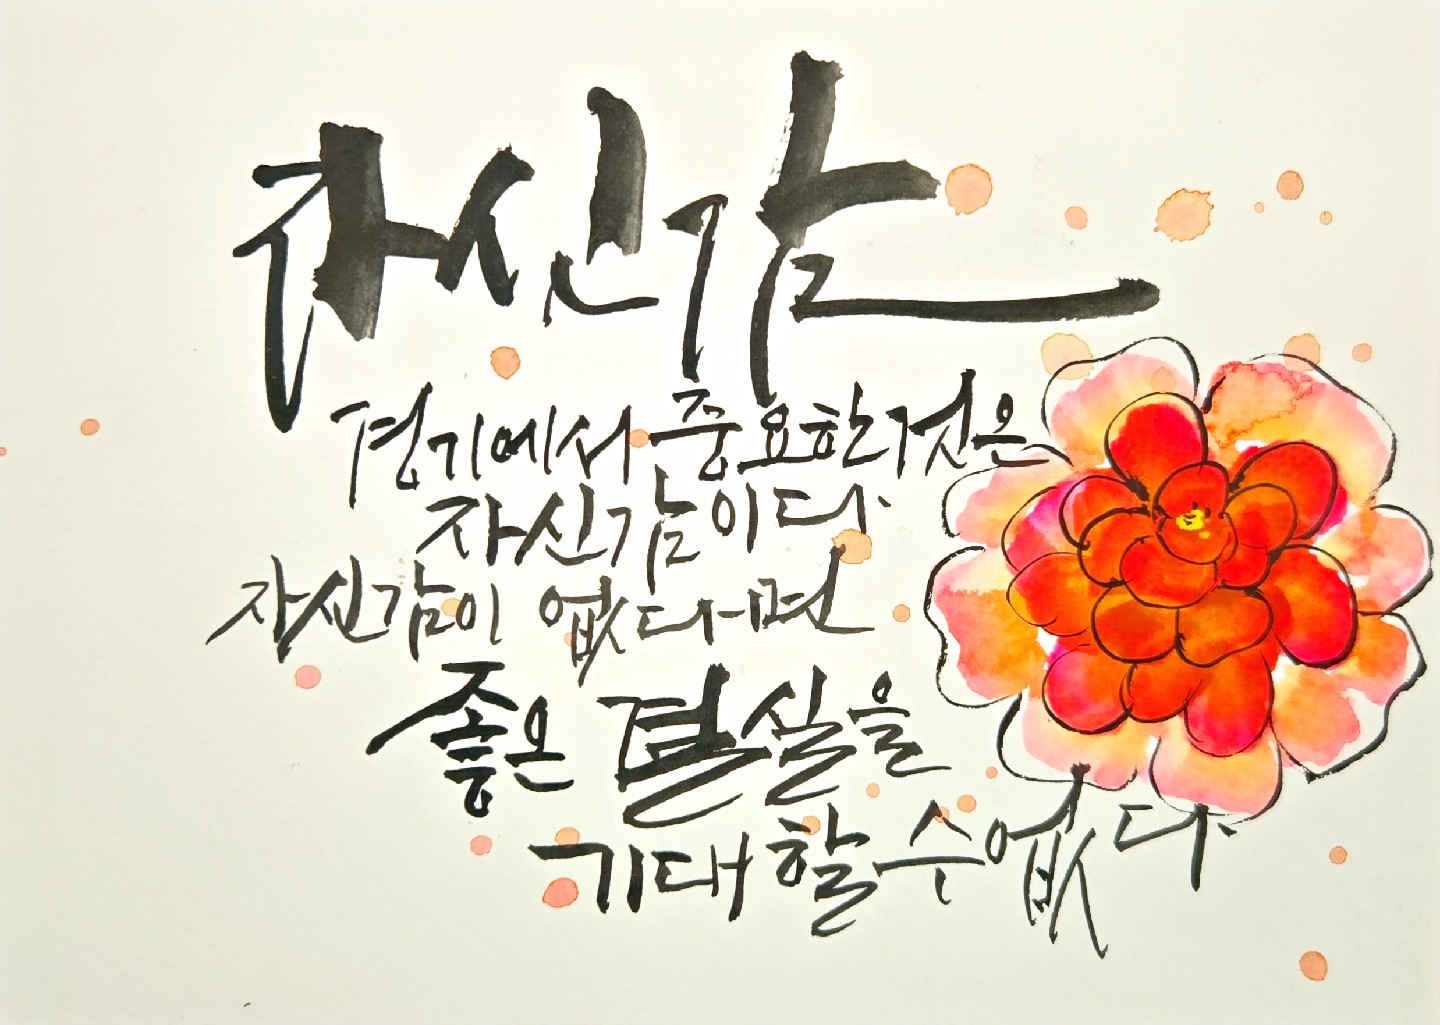 자신감
경기에서 중요한 것은
자신감이다.
자신감이 없다면
좋은 결실을
기대할 수 없다.